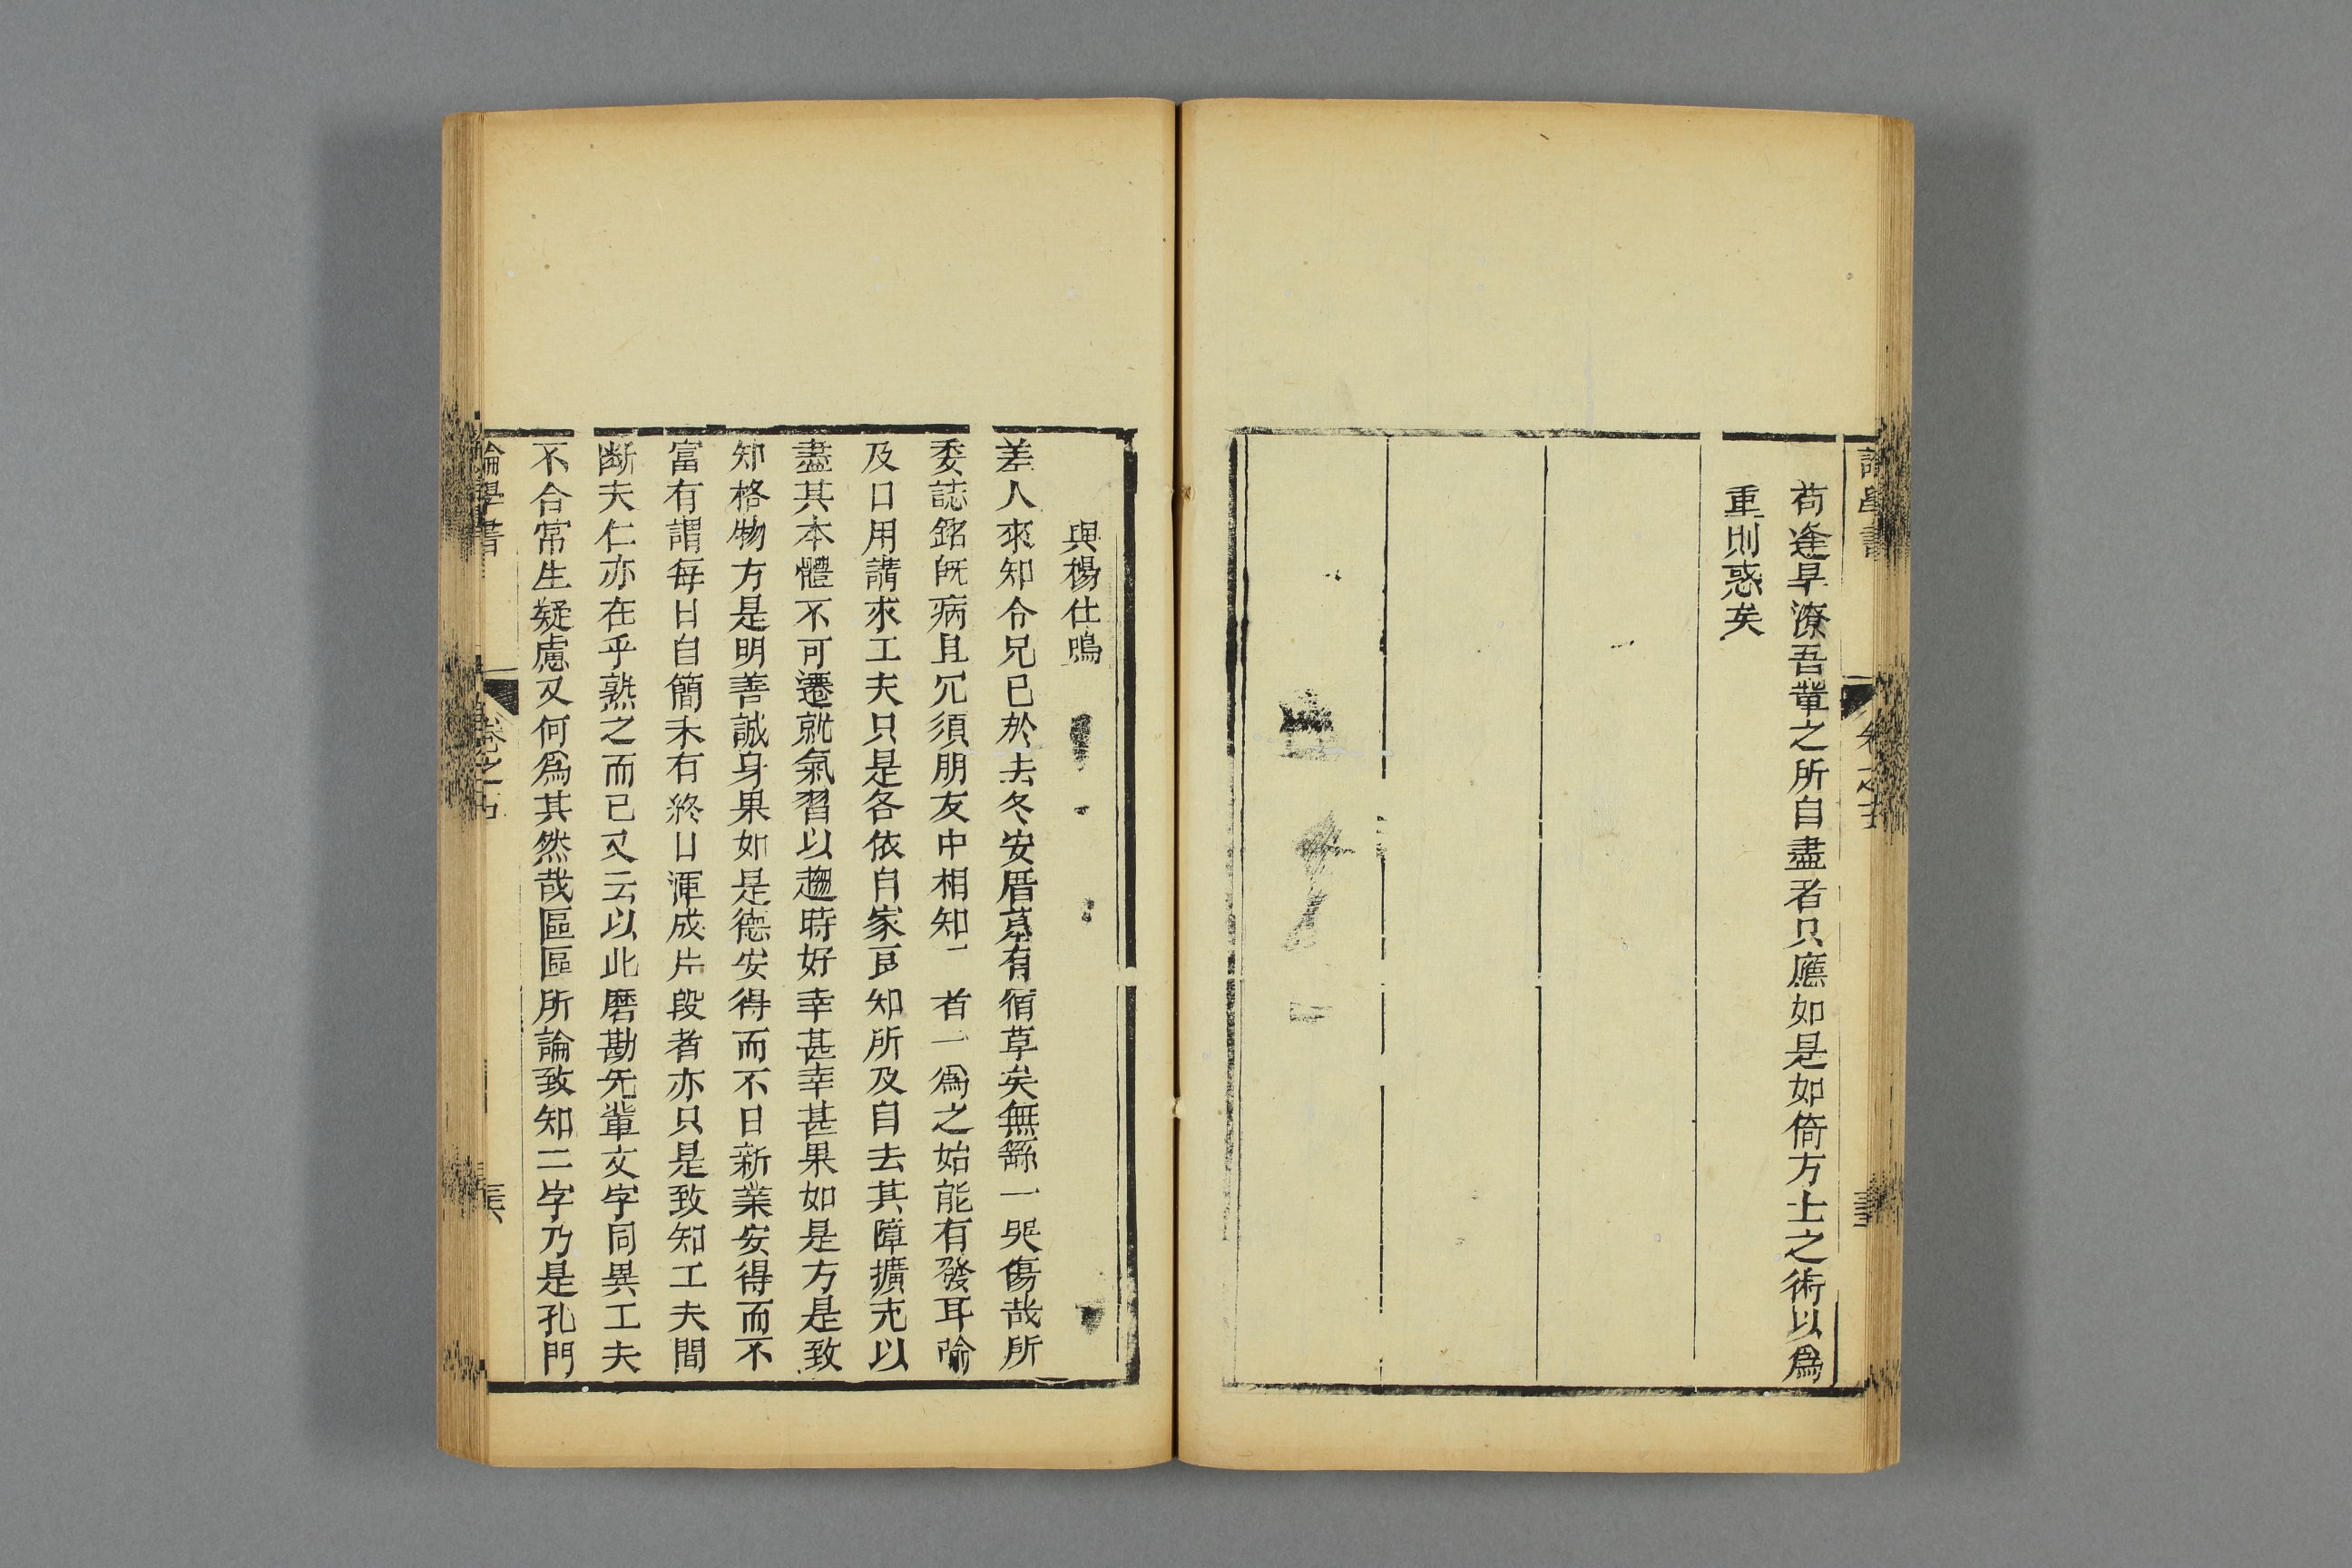 荷逢旱潦吾輩之所自盡者只應如是如倚方士之術以爲
重則惑矣
與楊仕鳴
差人來知令兄已於去冬安厝墓有宿草矣無繇一哭傷哉所
委誌銘旣病且冗須朋友中相知一者一爲之始能有發耳喻
及日用講求工夫只是各依自家良知所及自去其障擴充以
盡其本體不可遷就氣習以趨時好幸甚幸甚果如是方是致
知格物方是明善誠身果如是德安得而不日新業安得而不
富有謂每日自簡未有終日渾成片段者亦只是致知工夫間
斷夫仁亦在乎熟之而已又云以此磨勘先輩文字同異工夫
不合常生疑慮又何爲其然哉區區所論致知二字乃是孔門
論學書
卷之